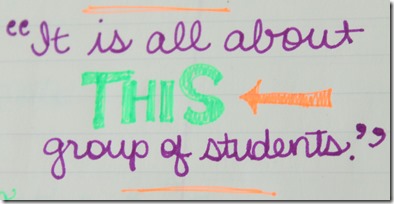 “It is all about
THIS
group of students.”